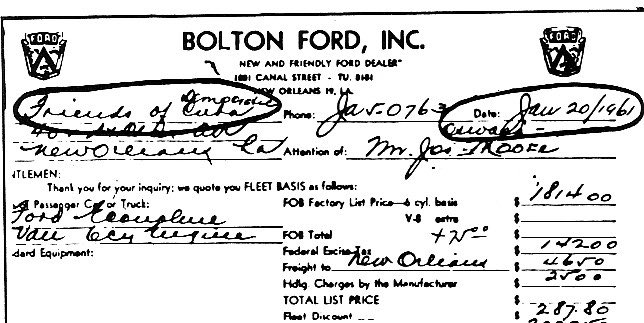 FORD
FORD
BOLTON FORD, INC.
"NEW AND FRIENDLY FORD DEALER"
1681 CANAL STREET - TU. 8181
NEW ORLEANS 19, LA.
Friends of Democratic Cuba
Phone: Ja 5-0763
Date: Jan 20/1961
New Orleans La
Oswald
Attention of: Mr. Jos. Moore
TLEMEN:
Thank you for your inquiry; we quote you FLEET BASIS as follows:
Passenger Car or Truck:
FOB Factory List Price—6 cyl. basis $ 1814 00
Ford Econoline
V-8 extra
Van 6cy Engine
FOB Total $
Federal Excise Tax $ 142 00
dard Equipment:
Freight to New Orleans $ 46 50
Hdlg. Charges by the Manufacturer $ 25 00
TOTAL LIST PRICE $
Fleet Discount